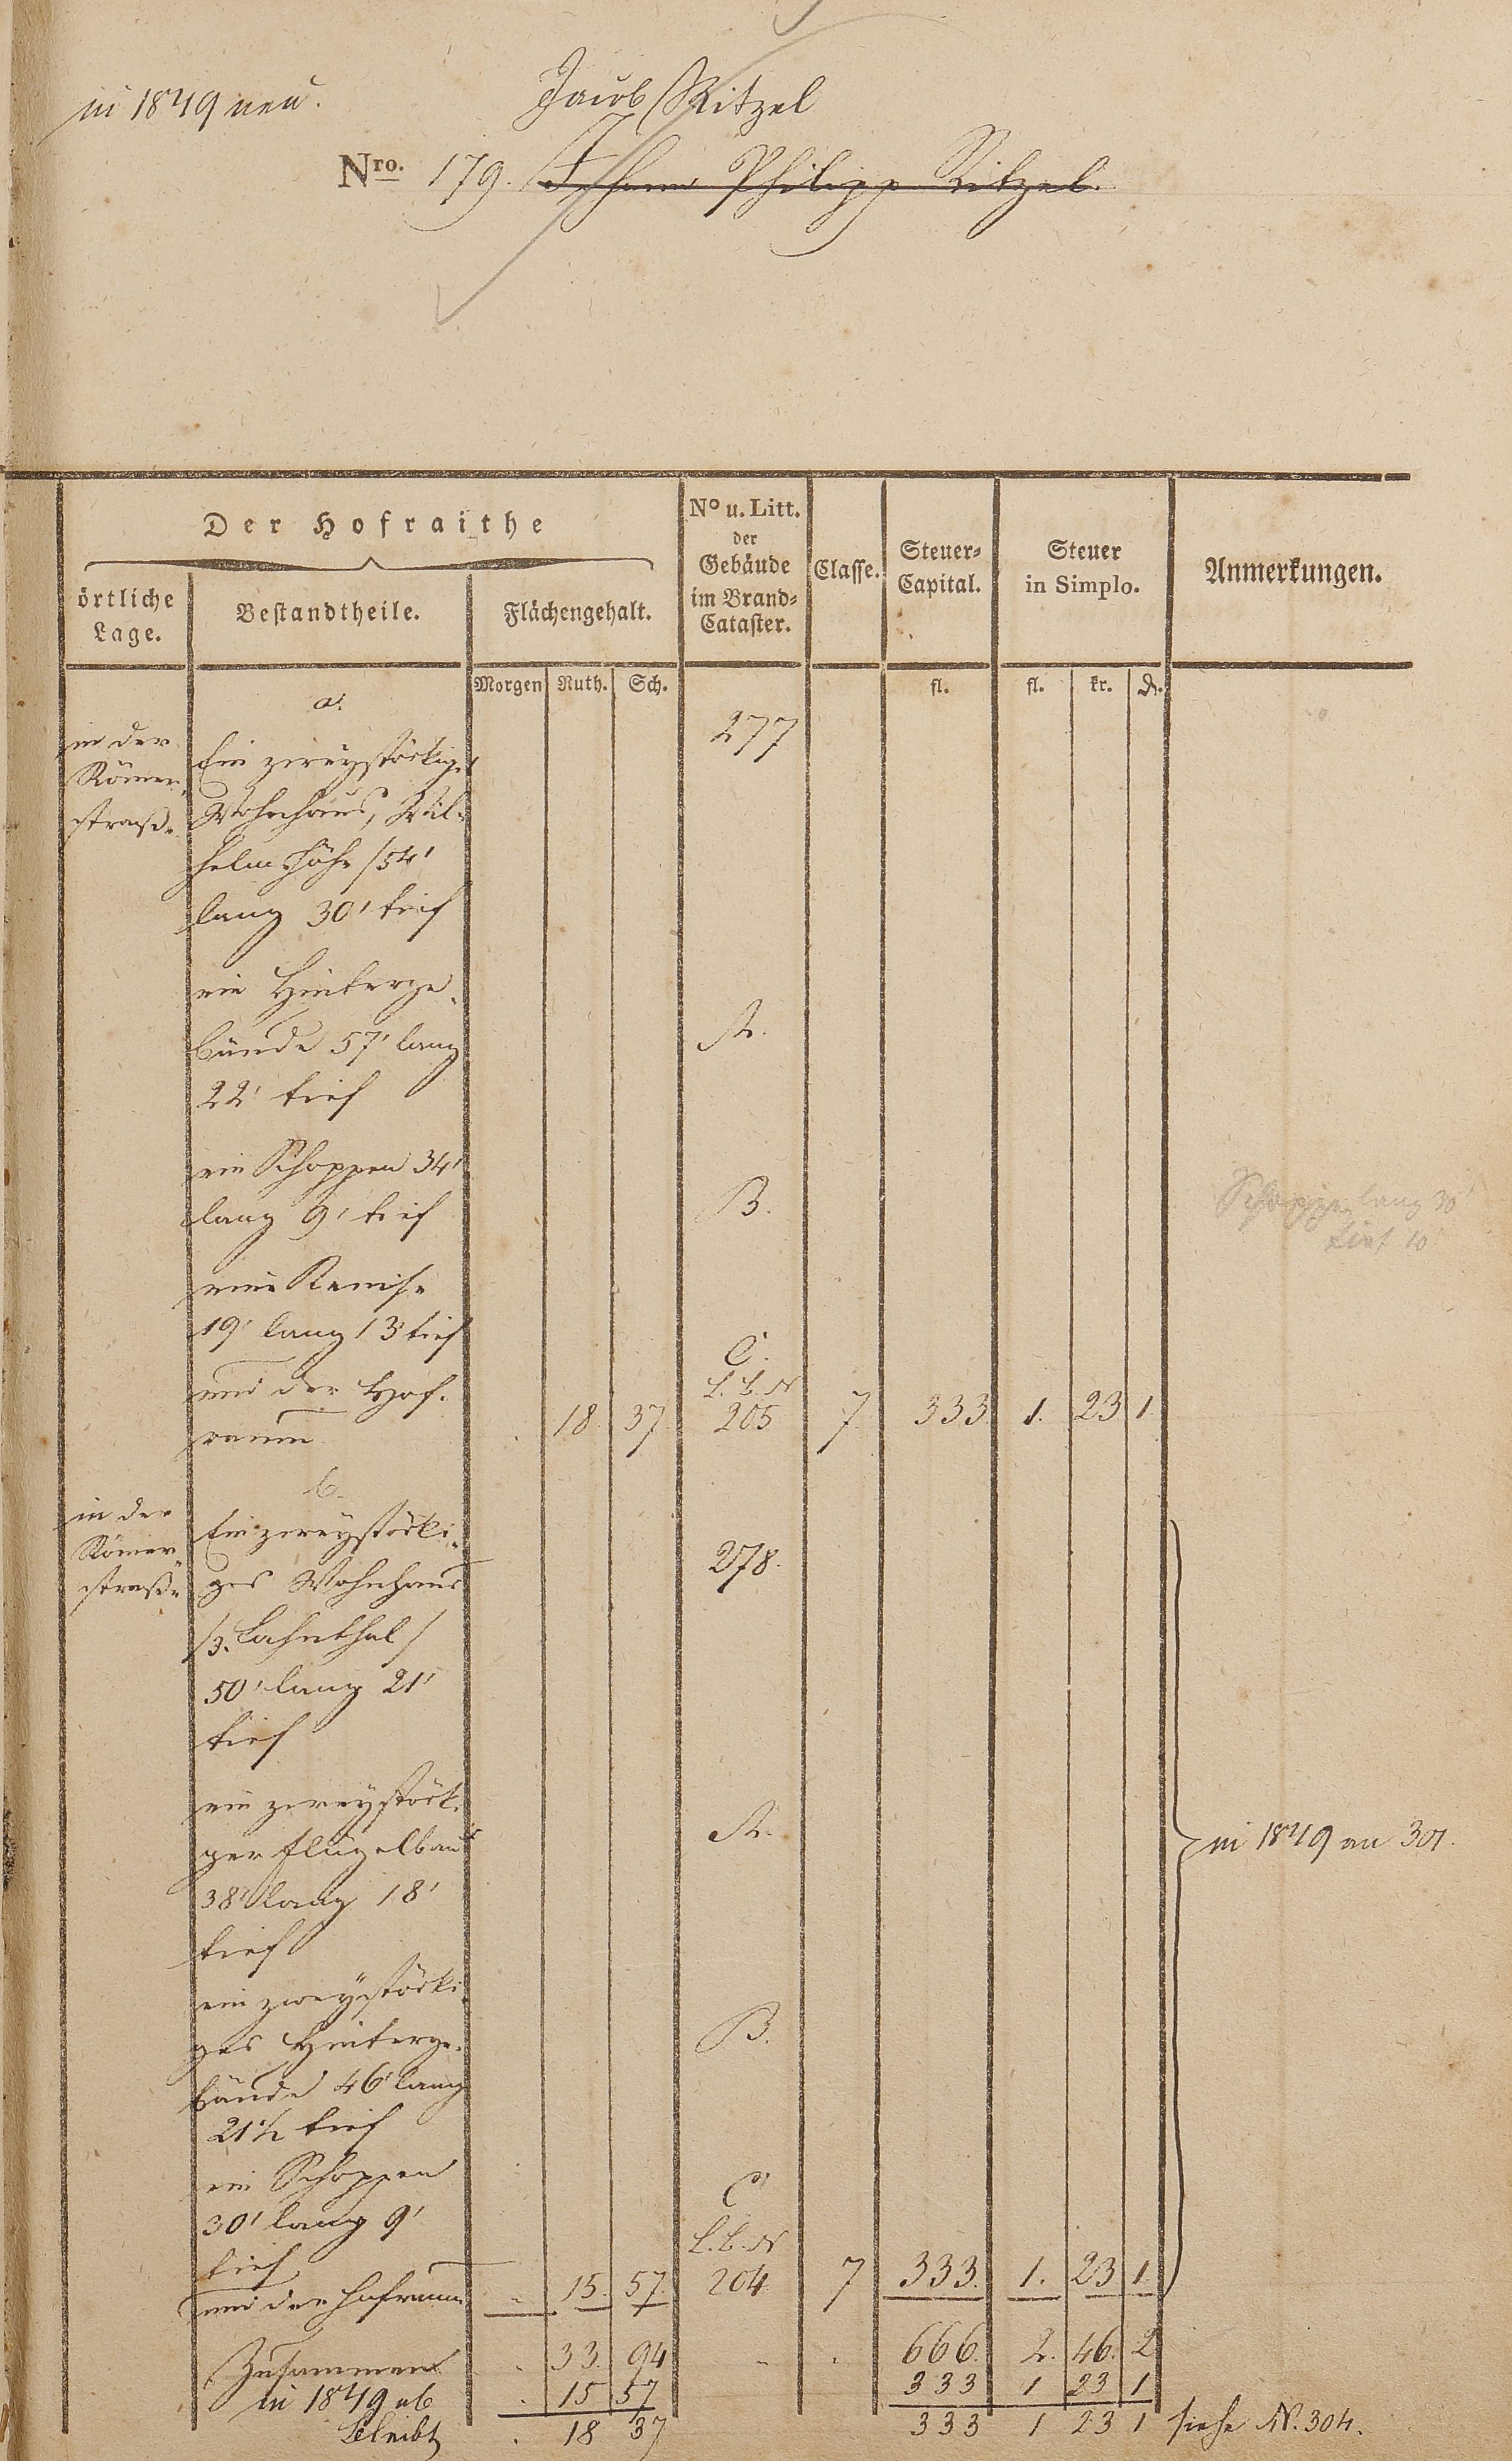 in 1849 neu.
Jacob Ritzel
Nro. 179. Johann Philipp Ritzel.
Der Hofraithe
örtliche
Lage.
Bestandtheile.
Flächengehalt.
No u. Litt.
der
Gebäude
im Brand-
Cataster.
Classe.
Steuer-
Capital.
Steuer
in Simplo.
Anmerkungen.
Morgen Ruth. Sch.
fl.
fl. kr. d.
a.
277
in der
Römer
straße
Ein zweystöckiges
Wohnhaus, Wil-
helm Höhe /54'
lang 30' tief
ein Hinterge-
bäude 57' lang A.
22' tief
ein Schoppen 34'
lang 9' tief B.
Schoppen lang 30'
tief 10'
eine Remise
19' lang 13' tief C.
und der Hof- L. B. N
raum . 18. 37. 205 7 333 1. 23 1.
b.
in der
Römer
straße
Ein zweystöcki-
ges Wohnhaus 278.
/z. Lahnthal/
50' lang 21'
tief
ein zweystöck.
ger Flügelbau A.
38' lang 18'
tief
in 1849 an 301.
ein zweystöcki-
ges Hinterge- B.
bäude 46' lang
21½ tief
ein Schoppen C
30' lang 9' L. B. N
tief
und der Hofraum . 15. 57. 204 7 333. 1. 23 1.
Zusammen . 33. 94 . . 666. 2. 46. 2
in 1849 ab . 15 57 333 1 23 1
bleibt . 18 37 333 1 23 1 siehe N. 304.